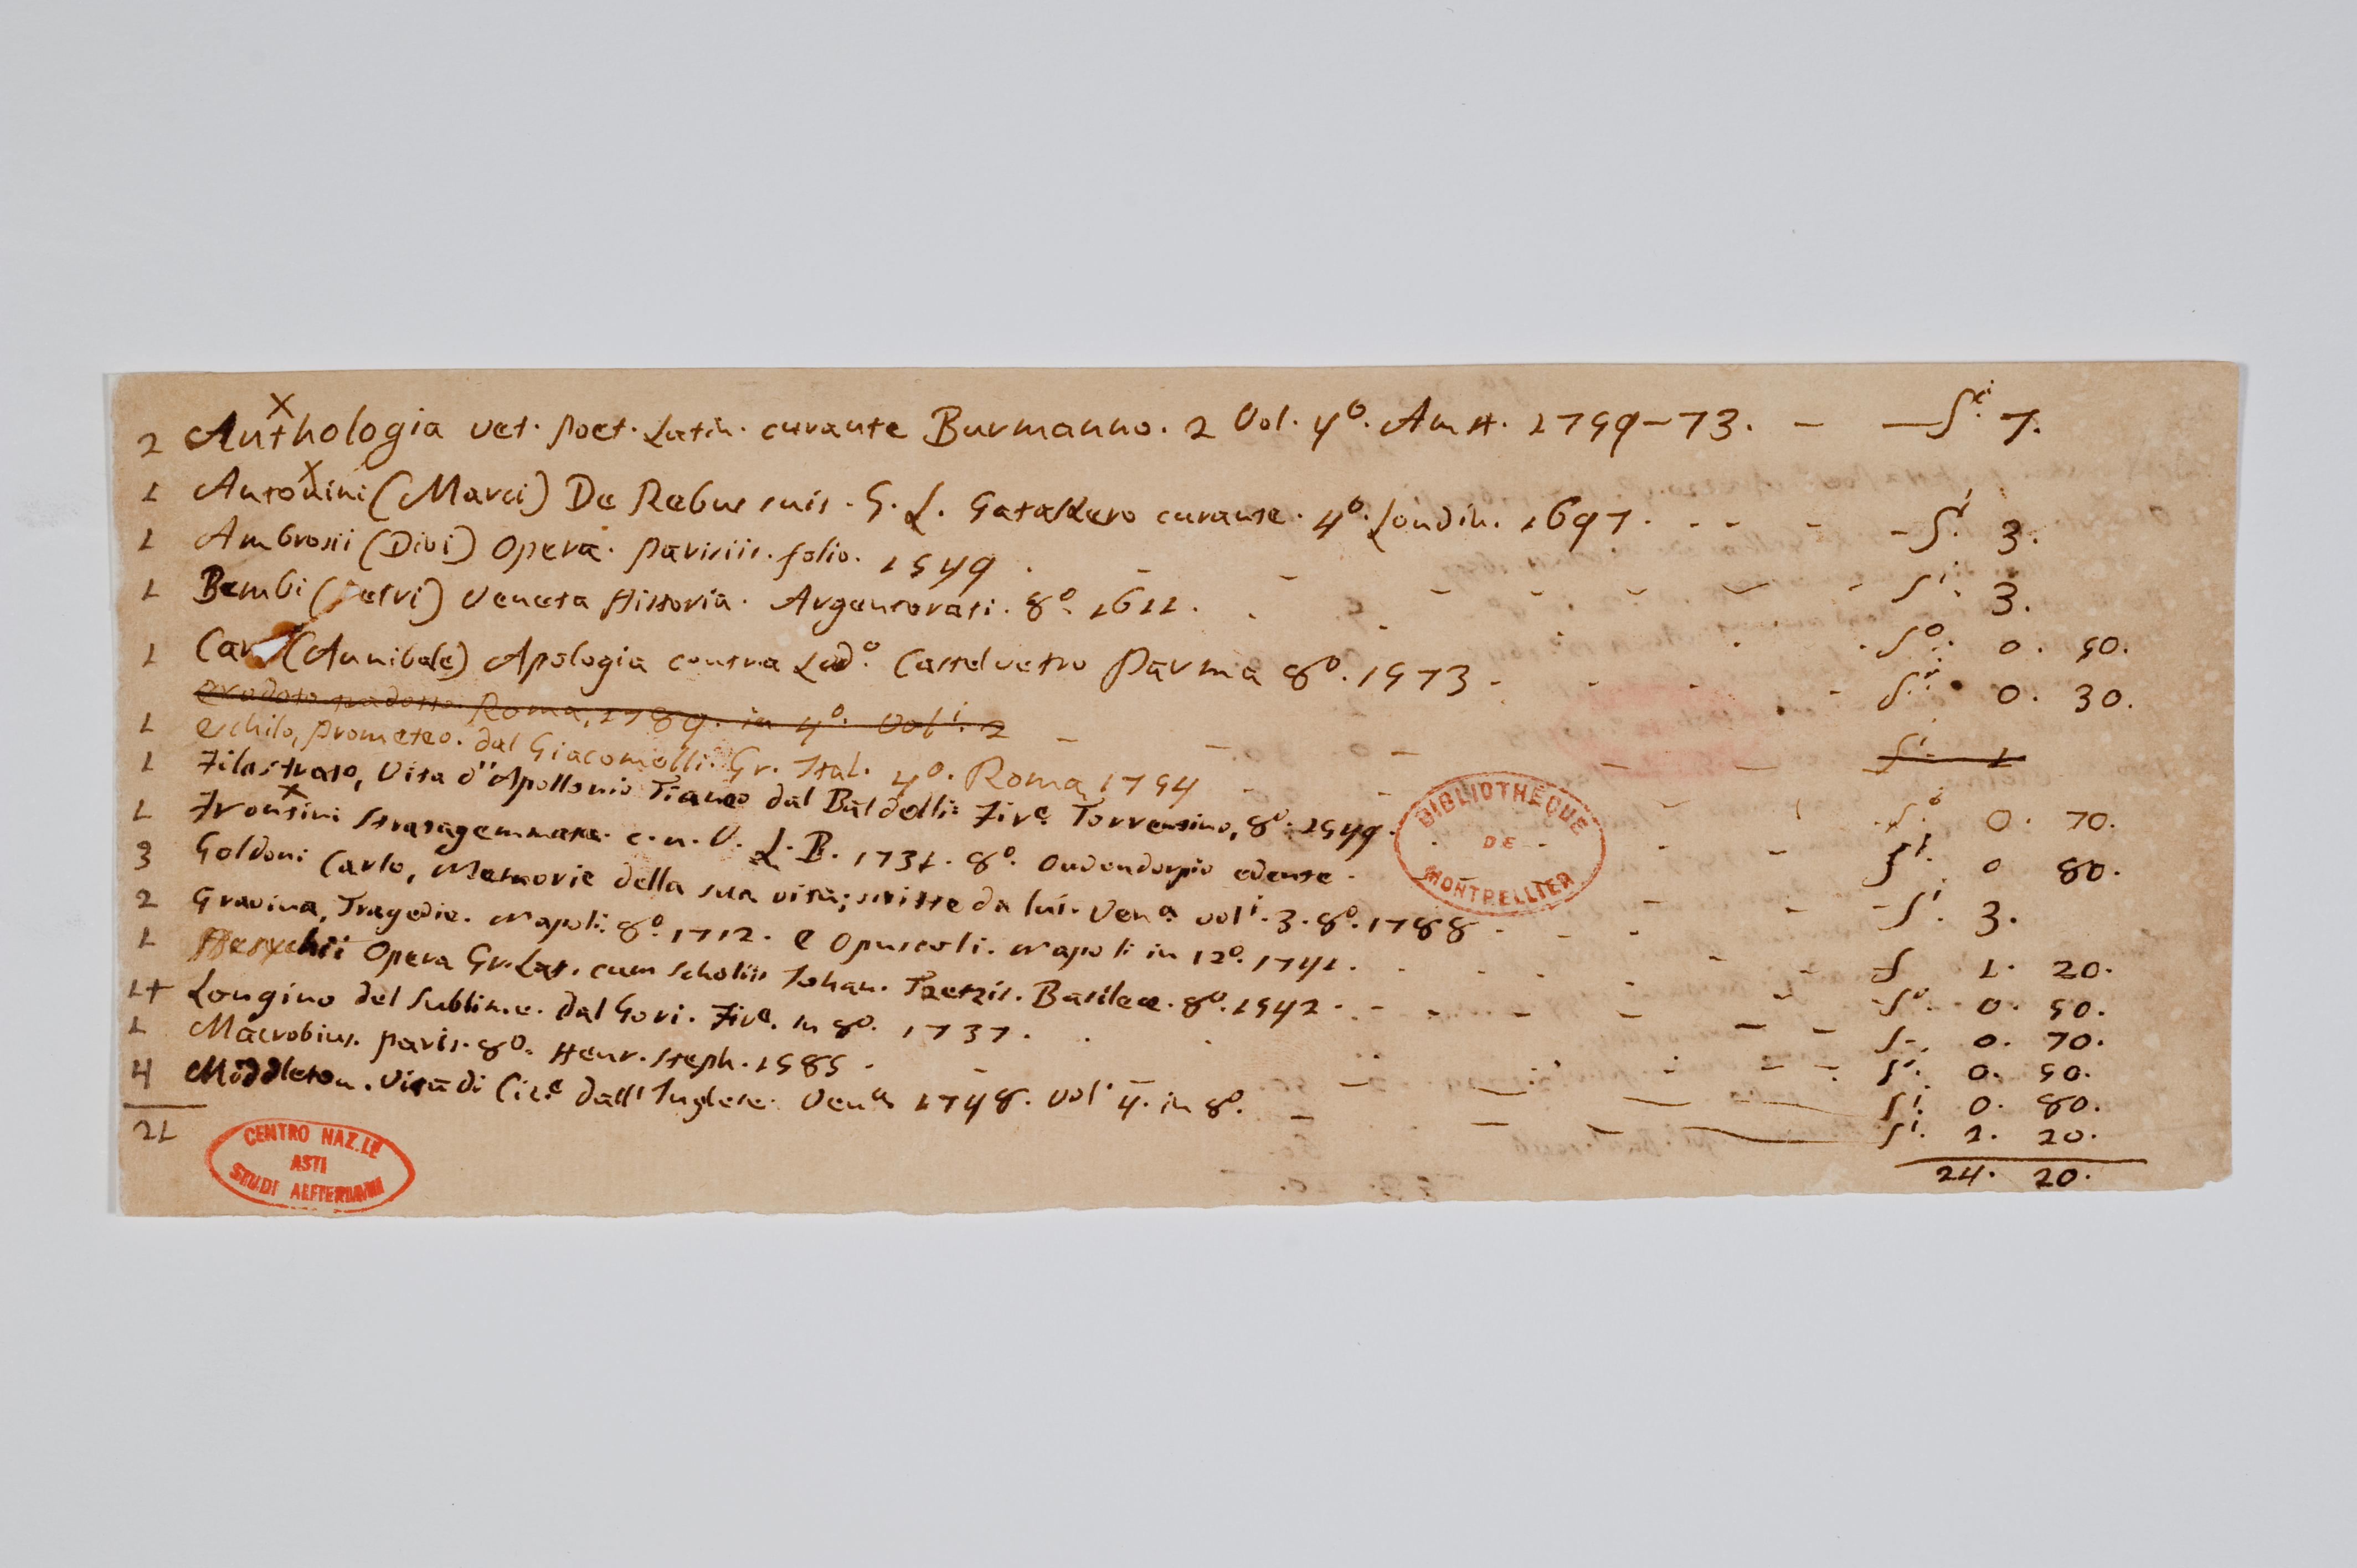 2 Anthologia vet. Poet. Latin. curante Burmanno. 2 Vol. 4º. Amst. 1759-73. - - Sⁱ. 7.
1 Antonini (Marci) De Rebus suis. G. L. Gatakero curante. 4º. Londin. 1697. - - - - Sⁱ. 3.
1 Ambrosii (Divi) Opera. Parisiis. folio. 1549. - - - - - - - Sⁱ. 3.
1 Bembi (Petri) Veneta Historia. Argentorati. 8º. 1611. - - - - Sº. 0. 50.
1 Caro (Annibale) Apologia contra Lodº. Castelvetro Parma 8º. 1573 - - - - Sⁱ. 0. 30.
Erodoto tradotto. Roma, 1789. in 4º. Volⁱ. 2 - - - - - Sⁱ. 1
1 Eschilo, Prometeo. dal Giacomelli. Gr. Ital. 4º. Roma 1754 - - - - Sⁱ. 0. 70.
1 Filostrato, Vita d'Apollonio Tianeo dal Baldelli. Firᵉ. Torrentino, 8º. 1549. - - Sⁱ. 0 80.
1 Frontini Stratagemmata. c. n. V. L. B. 1731. 8º. Oudendorpio edente. - - - Sⁱ. 3.
3 Goldoni Carlo, Memorie della sua vita; scritte da lui. Venᵃ volⁱ. 3. 8º. 1788 - - - - S 1. 20.
2 Gravina, Tragedie. Napoli. 8º. 1712. e Opuscoli. Napoli in 12º. 1741. - - - - Sº. 0. 50.
1 Opera Gr. Lat. cum Scholiis Johan. Tzetzis. Basileae. 8º. 1542. - - - - - S. 0. 70.
1+ Longino del Sublime. dal Gori. Firᵉ. in 8º. 1737. - - - Sⁱ. 0. 50.
1 Macrobius. Paris. 8º. Henr. Steph. 1585. - - - - Sⁱ. 0. 80.
4 Middleton. Vita di Cicᵉ dall'Inglese. Venᵃ 1748. Volⁱ 4. in 8º. - - - Sⁱ. 2. 20.
21 24. 20.
BIBLIOTHÈQUE
DE
MONTPELLIER
CENTRO NAZ.LE
ASTI
STUDI ALFIERIANI